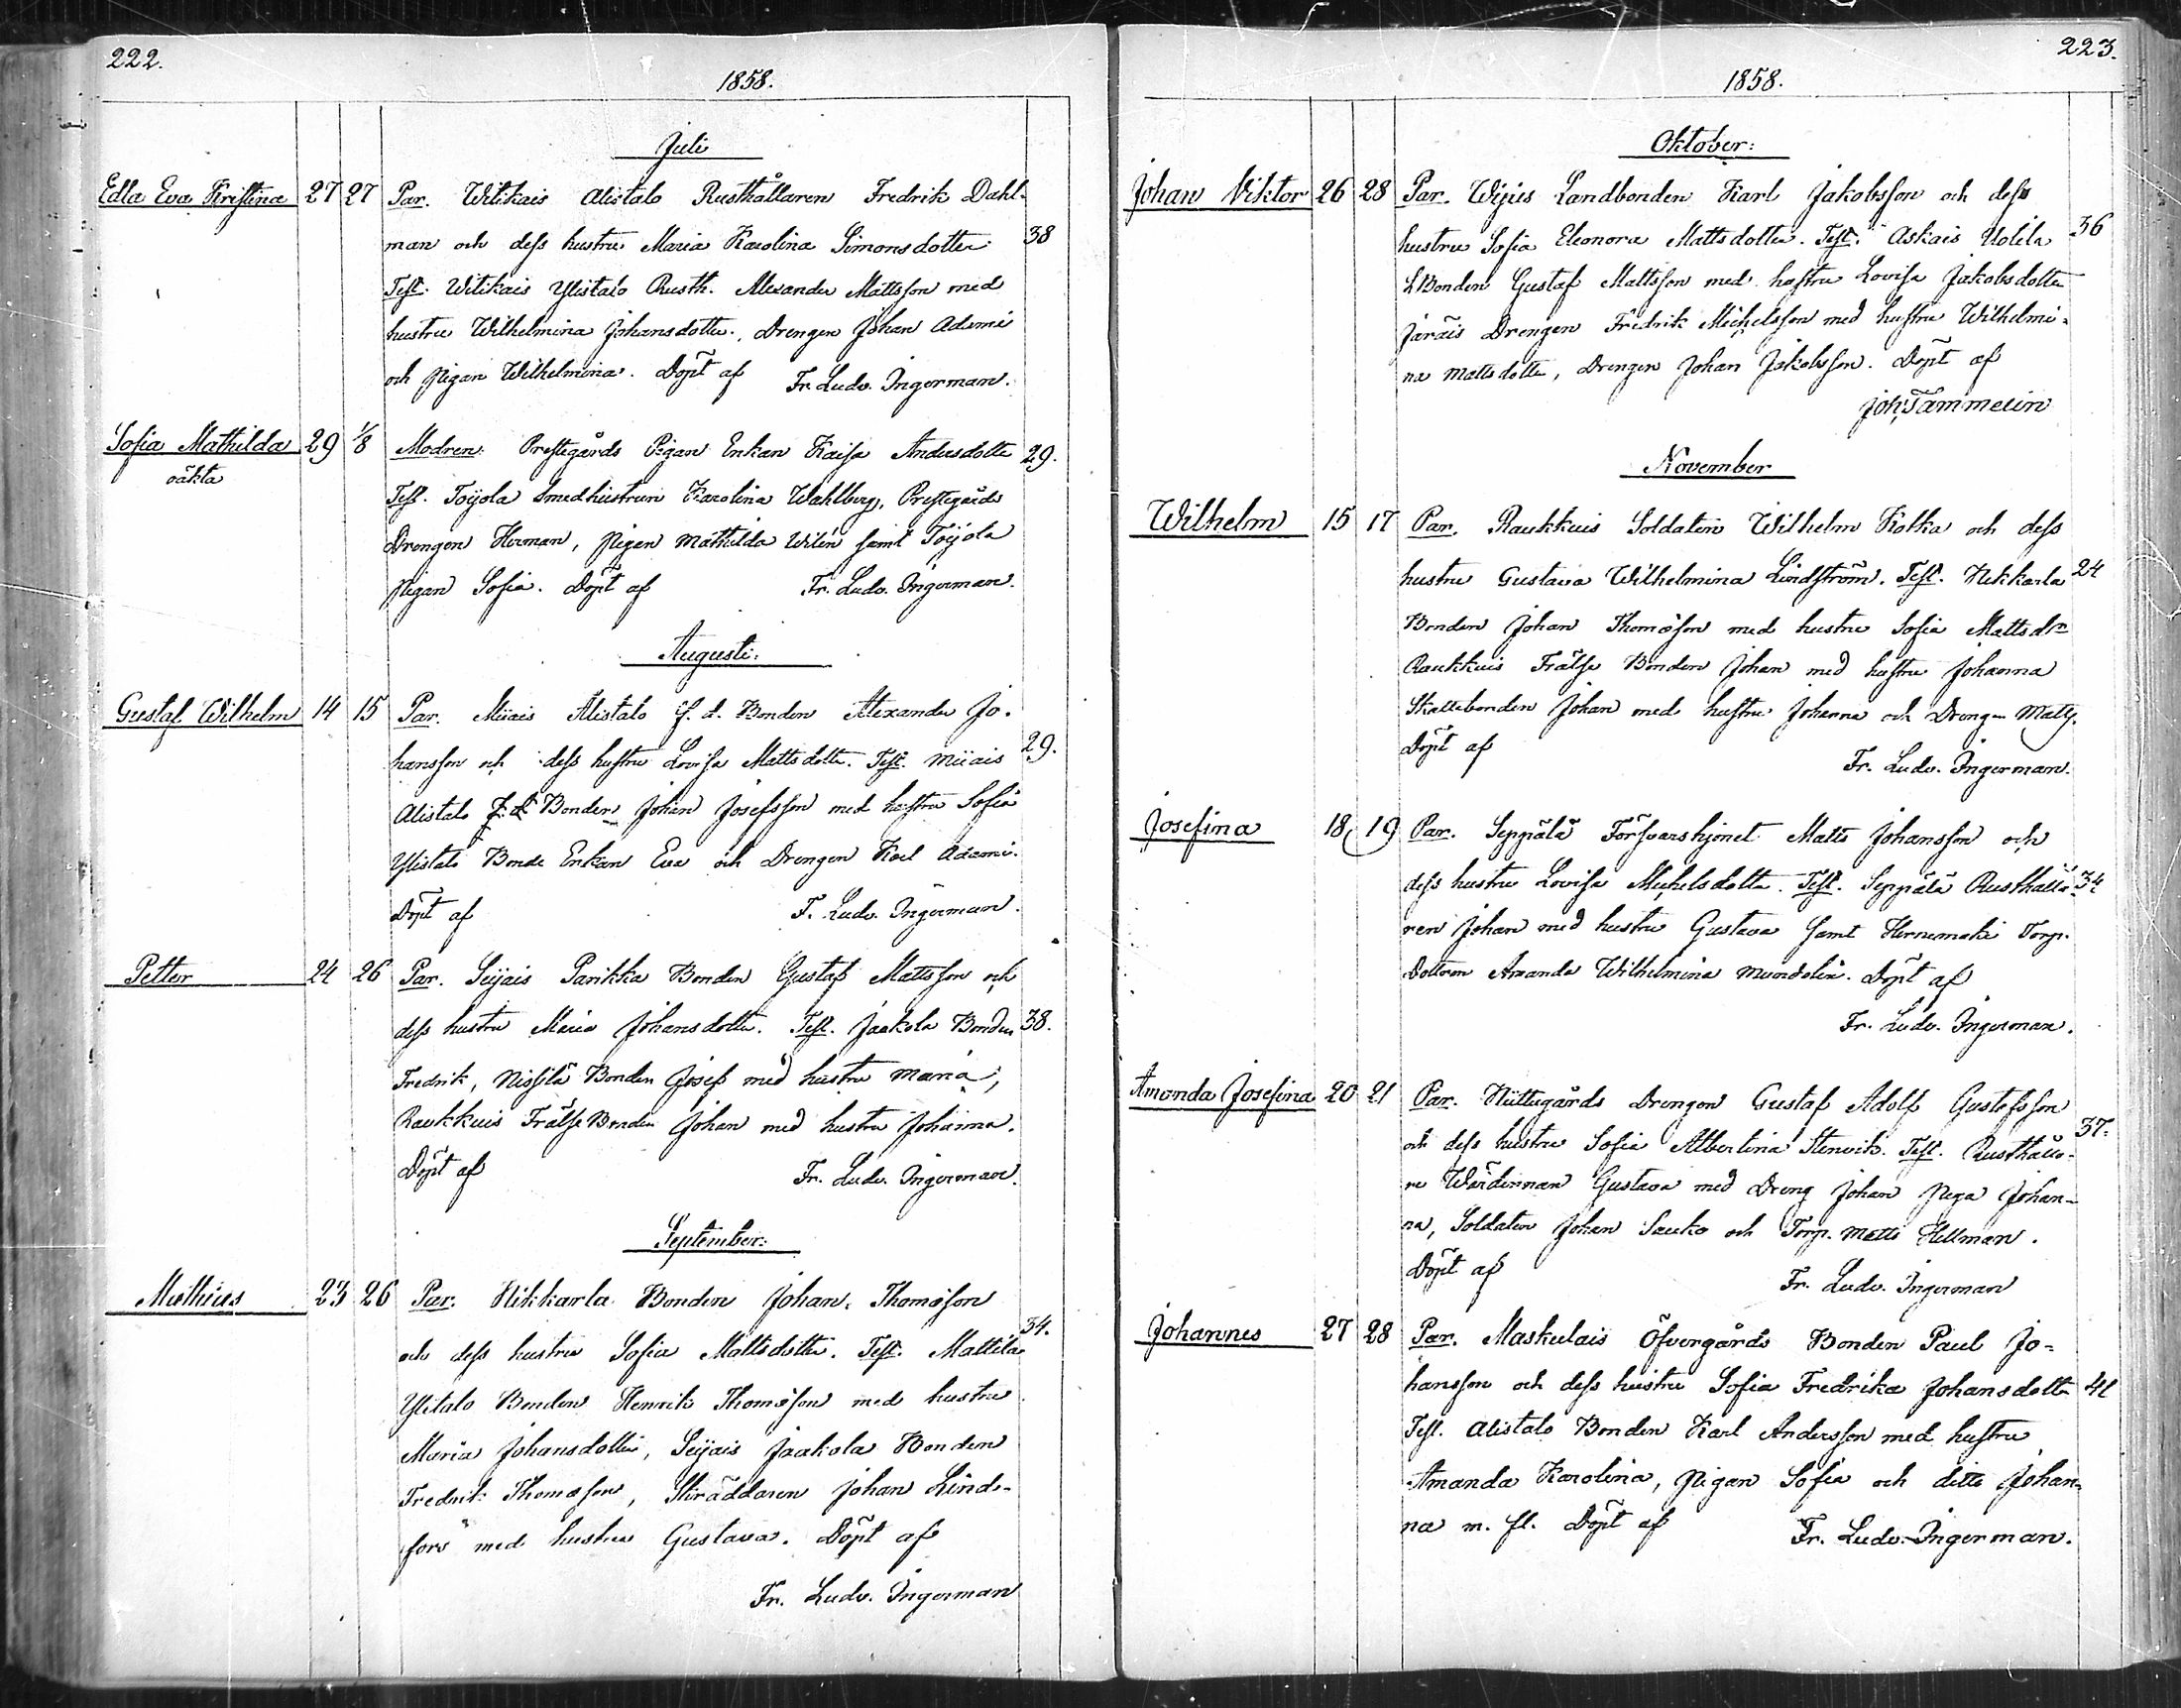 222.
1858.
Juli
Edla Eva Kristina 27 27 Par. Witikais Alistalo Rusthållaren Fredrik Dahl-
man och dess hustru Maria Karolina Simonsdotter 38
Test. Witikais Ylistalo Rusth. Alexander Mattsson med
hustru Wilhelmina Johansdotter, Drengen Johan Adami
och Pigan Wilhelmina. Döpt af Fr. Ludv. Ingerman.
Sofia Mathilda 29 1/8 Modren Prestegårds Pigan Enkan Kaisa Andersdotte 29.
oäkta
Test. Toijola Smedhustrun Karolina Wahlberg, Prestegårds
Drengen Herman, Pigan Mathilda Wilén samt Toijola
Pigan Sofia. Döpt af Fr. Ludv. Ingerman.
Augusti:
Gustaf Wilhelm 14 15 Par. Miiais Alistalo f. d. Bonden Alexander Jo-
hansson och dess hustru Lovisa Mattsdotter. Test. Miiais 29.
Alistalo f. d. Bonden Johan Josefsson med hustru Sofia
Ylistalo Bonde Enkan Eva och Drengen Karl Adami.
Döpt af F. Ludv. Ingerman.
Petter 24 26 Par. Seijais Parikka Bonden Gustaf Mattsson och
dess hustru Maria Johansdotter. Test. Jaakola Bonden 38.
Fredrik, Nissilä Bonden Josef med hustru Maria,
Raukkuis Frälse Bonden Johan med hustru Johanna.
Döpt af Fr. Ludv. Ingerman.
September:
Mathias 23 26 Par. Hikkarla Bonden Johan Thomsson
och dess hustru Sofia Mattsdotter. Test. Mattila 34.
Ylitalo Bonden Henrik Thomsson med hustru
Maria Johansdotter, Seijais Jaakola Bonden
Fredrik Thomsson, Skräddaren Johan Lind-
fors med hustru Gustava. Döpt af
Fr. Ludv. Ingerman
223.
1858.
Oktober:
Johan Viktor 26 28 Par. Wijus Landbonden Karl Jakobsson och dess
hustru Sofia Eleonora Mattsdotter. Test. Askais Uolila 36
LBonden Gustaf Mattsson med hustru Lovisa Jakobsdotter
Järäis Drengen Fredrik Michelsson med hustru Wilhelmi-
na Mattsdotter, Drengen Johan Jakobsson. Döpt af
Joh: Tammelin
November
Wilhelm 15 17 Par. Raukkuis Soldaten Wilhelm Kotka och dess
hustru Gustava Wilhelmina Lindström. Test. Hikkarla 24
Bonden Johan Thomsson med hustru Sofia Mattsdr
Raukkuis Frälse Bonden Johan med hustru Johanna
Skattebonden Johan med hustru Johanna och Drengen Matts.
Döpt af Fr. Ludv. Ingerman.
Josefina 18 19 Par. Seppälä Försvarshjonet Matts Johansson och
dess hustru Lovisa Michelsdotter. Test. Seppälä Rusthålla- 34
ren Johan med hustru Gustava samt Hernemaki Torp.
Dottren Amanda Wilhelmina Mundelin. Döpt af
Fr. Ludv. Ingerman.
Amanda Josefina 20 21 Par. Nuttegårds Drengen Gustaf Adolf Gustafsson
och dess hustru Sofia Albertina Stenvik. Test. Rusthålla- 37.
re Wärdinnan Gustava med Dreng Johan Piga Johan-
na, Soldaten Johan Sauko och Torp. Matts Hellman.
Döpt af Fr. Ludv. Ingerman
Johannes 27 28 Par. Maskulais Öfvergårds Bonden Paul Jo-
hansson och dess hustru Sofia Fredrika Johansdotte 41
Test. Alistalo Bonden Karl Andersson med hustru
Amanda Karolina, Pigan Sofia och ditto Johan-
na m. fl. Döpt af Fr. Ludv. Ingerman.